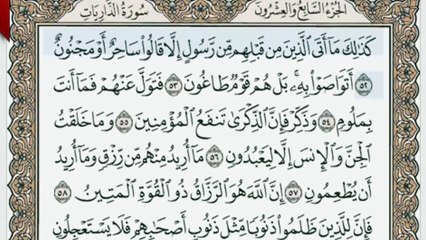 الجزء السابع والعشرون
سورة الذاريات
كَذَٰلِكَ مَآ أَتَى ٱلَّذِينَ مِن قَبۡلِهِم مِّن رَّسُولٍ إِلَّا قَالُواْ سَاحِرٌ أَوۡ مَجۡنُونٌ
٥٢ أَتَوَاصَوۡاْ بِهِۦۚ بَلۡ هُمۡ قَوۡمٞ طَاغُونَ ٥٣ فَتَوَلَّ عَنۡهُمۡ فَمَآ أَنتَ
بِمَلُومٖ ٥٤ وَذَكِّرۡ فَإِنَّ ٱلذِّكۡرَىٰ تَنفَعُ ٱلۡمُؤۡمِنِينَ ٥٥ وَمَا خَلَقۡتُ
ٱلۡجِنَّ وَٱلۡإِنسَ إِلَّا لِيَعۡبُدُونِ ٥٦ مَآ أُرِيدُ مِنۡهُم مِّن رِّزۡقٖ وَمَآ أُرِيدُ
أَن يُطۡعِمُونِ ٥٧ إِنَّ ٱللَّهَ هُوَ ٱلرَّزَّاقُ ذُو ٱلۡقُوَّةِ ٱلۡمَتِينُ ٥٨
فَإِنَّ لِلَّذِينَ ظَلَمُواْ ذَنُوبٗا مِّثۡلَ ذَنُوبِ أَصۡحَٰبِهِمۡ فَلَا يَسۡتَعۡجِلُونِ